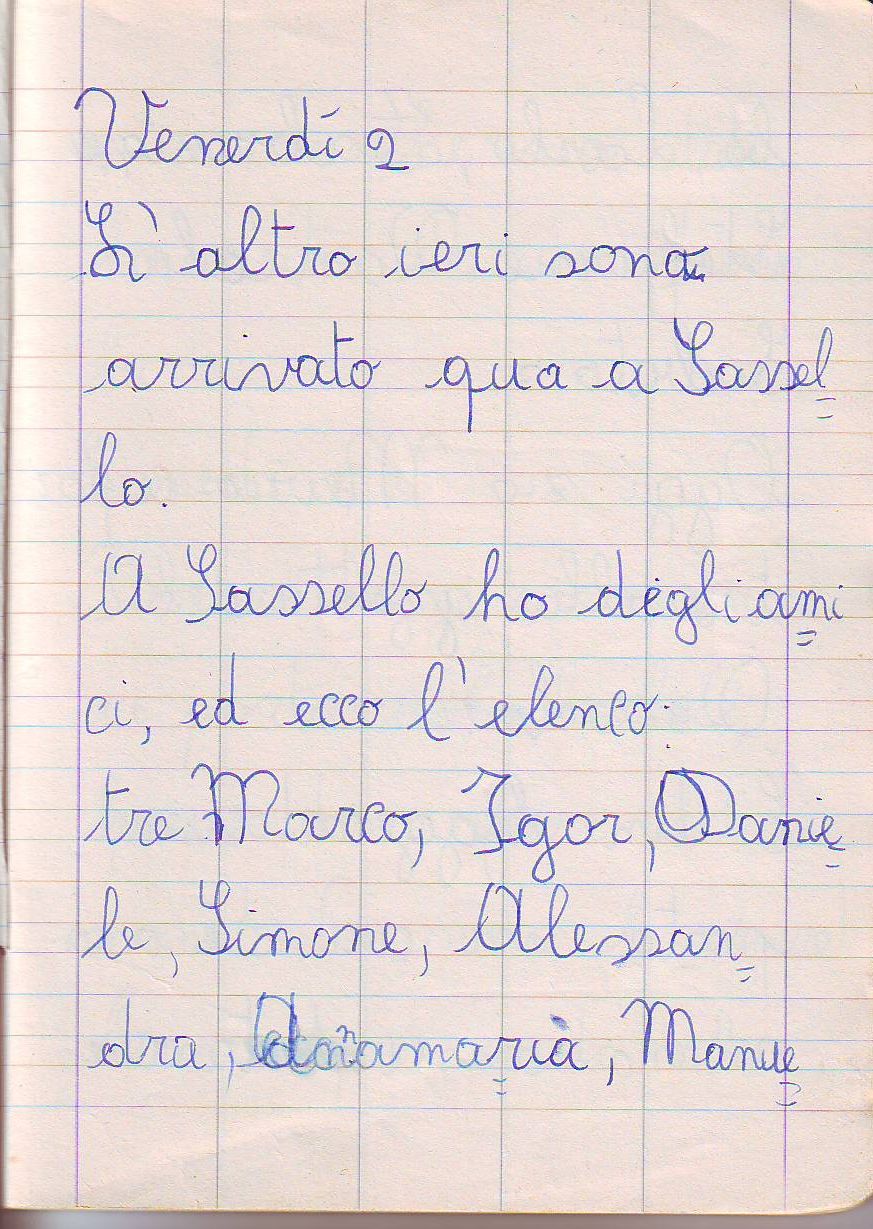 Venerdí 2
L' altro ieri sono
arrivato qua a Sassel=
lo.
A Sassello ho degli ami=
ci, ed ecco l'elenco:
tre Marco, Igor, Danie=
le, Simone, Alessan=
dra, Annamaria, Manue=